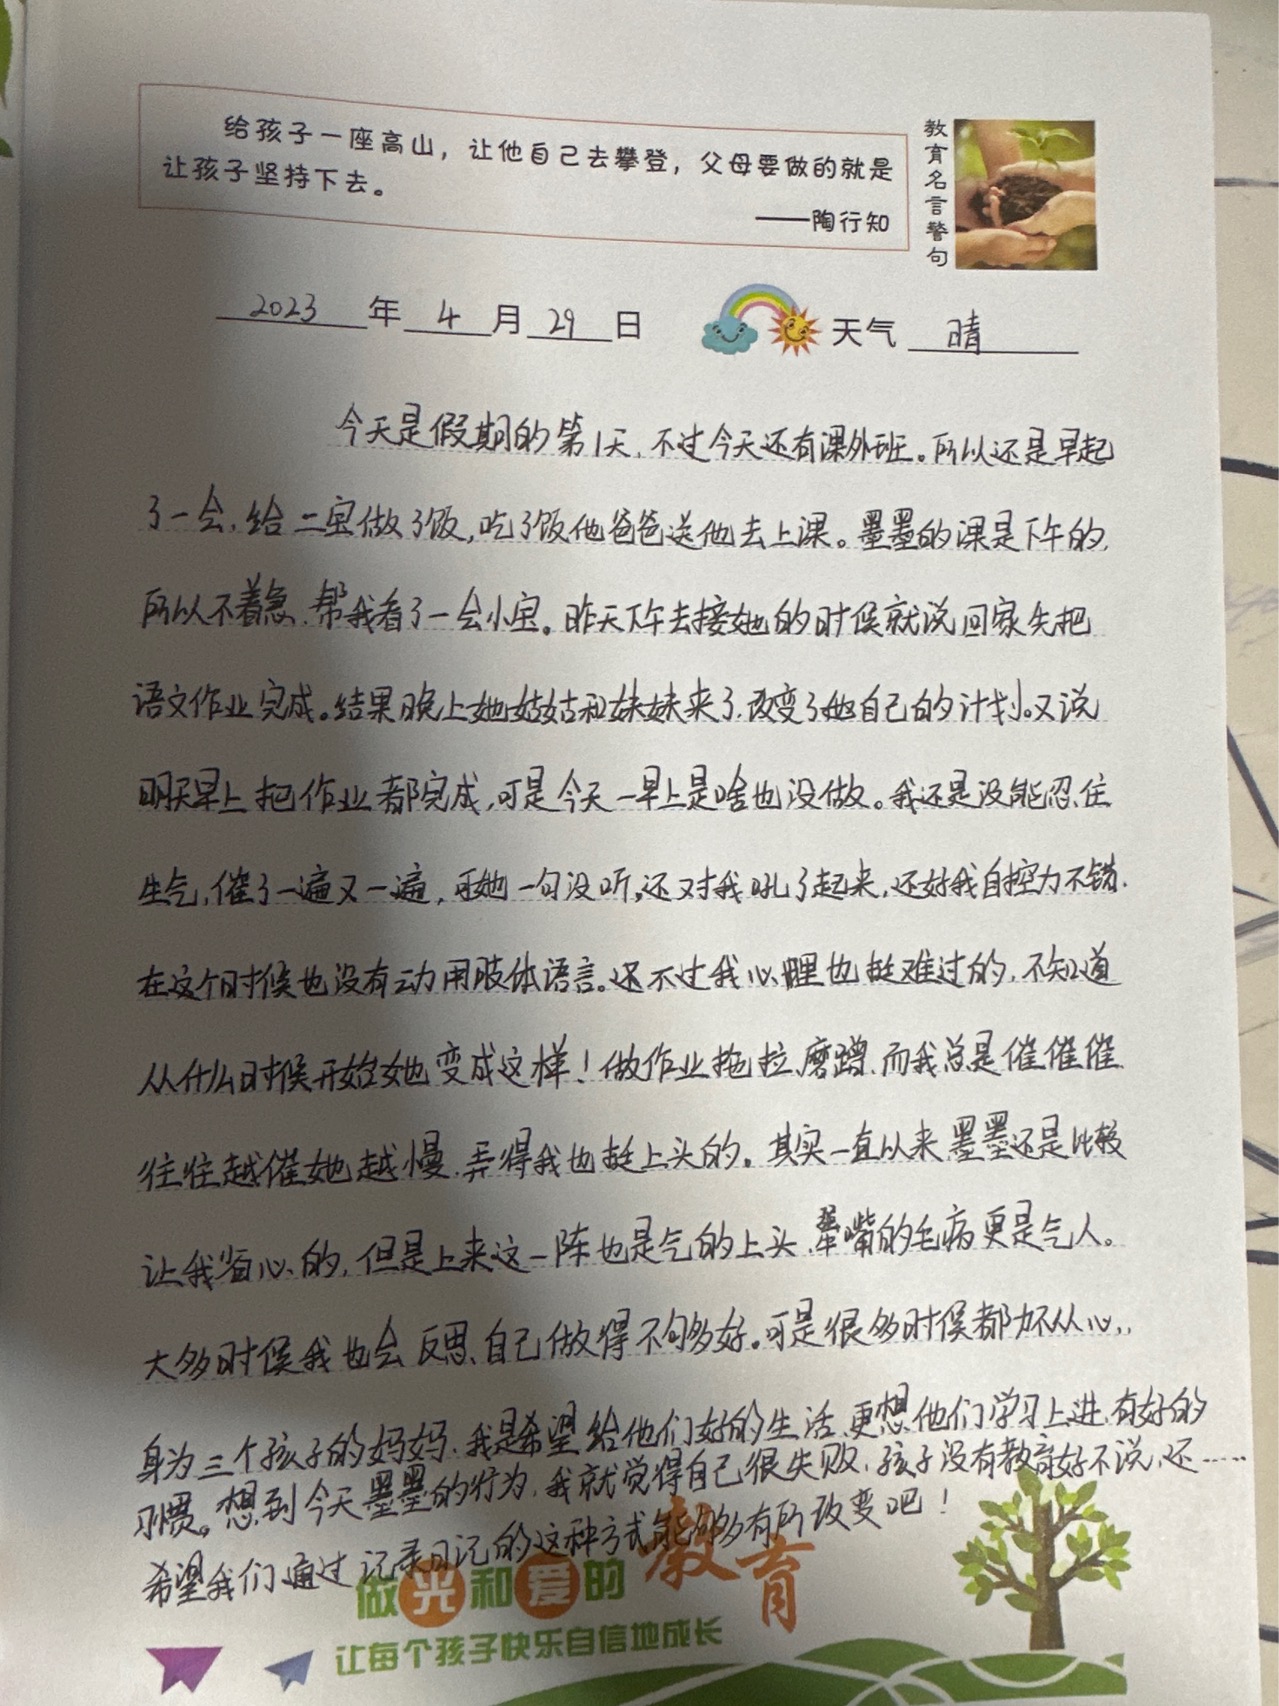 给孩子一座高山，让他自己去攀登，父母要做的就是
让孩子坚持下去。
——陶行知
教育名言警句
2023年4月29日 天气 晴
今天是假期的第1天，不过今天还有课外班。所以还是早起
了一会，给二宝做了饭，吃了饭他爸爸送他去上课。墨墨的课是下午的，
所以不着急，帮我看了一会小宝。昨天下午去接她的时候就说回家先把
语文作业完成。结果晚上她姑姑和妹妹来了，改变了她自己的计划。又说
明天早上把作业都完成，可是今天一早上是啥也没做。我还是没能忍住
生气，催了一遍又一遍，可她一句没听，还对我吼了起来，还好我自控力不错，
在这个时候也没有动用肢体语言。还不过我心里也挺难过的，不知道
从什么时候开始她变成这样！做作业拖拉、磨蹭，而我总是催催催，
往往越催她越慢，弄得我也挺上头的。其实一直以来墨墨还是比较
让我省心的，但是上来这一阵也是气的上头，犟嘴的毛病更是气人。
大多时候我也会反思，自己做得不够多好。可是很多时候都力不从心，
身为三个孩子的妈妈，我是希望给他们好的生活，更想他们学习上进，有好的
习惯。想到今天墨墨的行为，我就觉得自己很失败，孩子没有教育好不说，还……
希望我们通过记录日记的这种方式能够多有所改变吧！
做光和爱的教育
让每个孩子快乐自信地成长